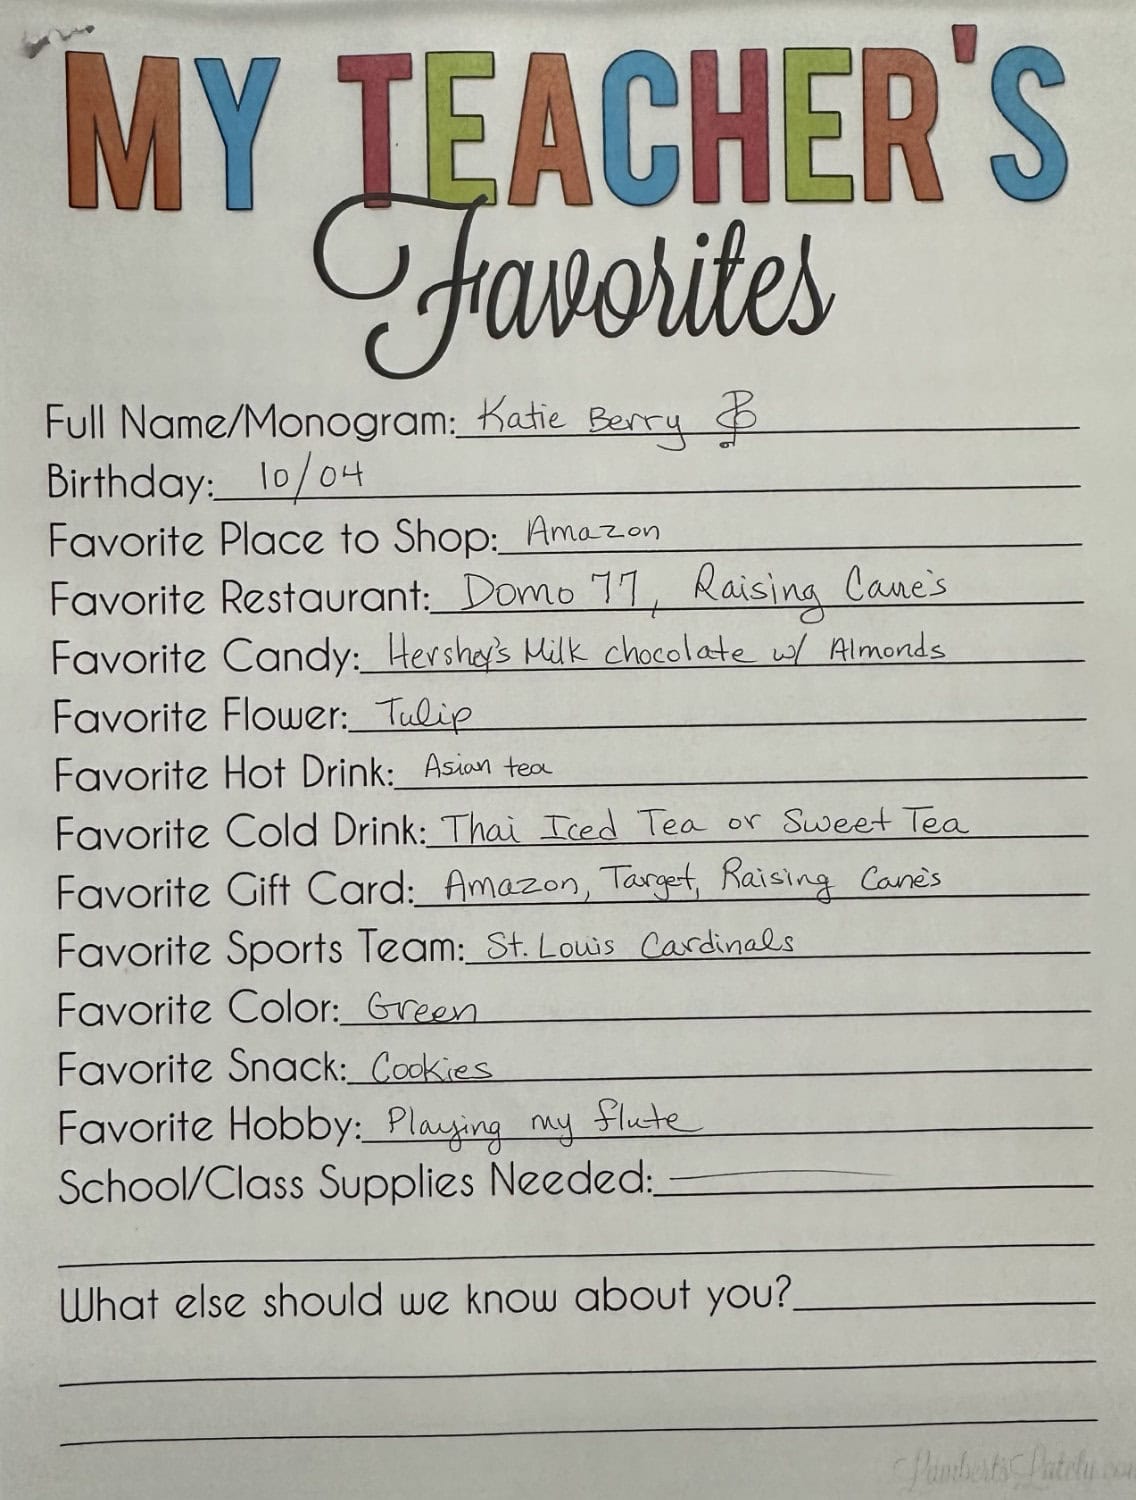 MY TEACHER'S
Favorites
Full Name/Monogram: Katie Berry
Birthday: 10/04
Favorite Place to Shop: Amazon
Favorite Restaurant: Domo 77, Raising Cane's
Favorite Candy: Hershey's Milk chocolate w/ Almonds
Favorite Flower: Tulip
Favorite Hot Drink: Asian tea
Favorite Cold Drink: Thai Iced Tea or Sweet Tea
Favorite Gift Card: Amazon, Target, Raising Cane's
Favorite Sports Team: St. Louis Cardinals
Favorite Color: Green
Favorite Snack: Cookies
Favorite Hobby: Playing my flute
School/Class Supplies Needed:
What else should we know about you?